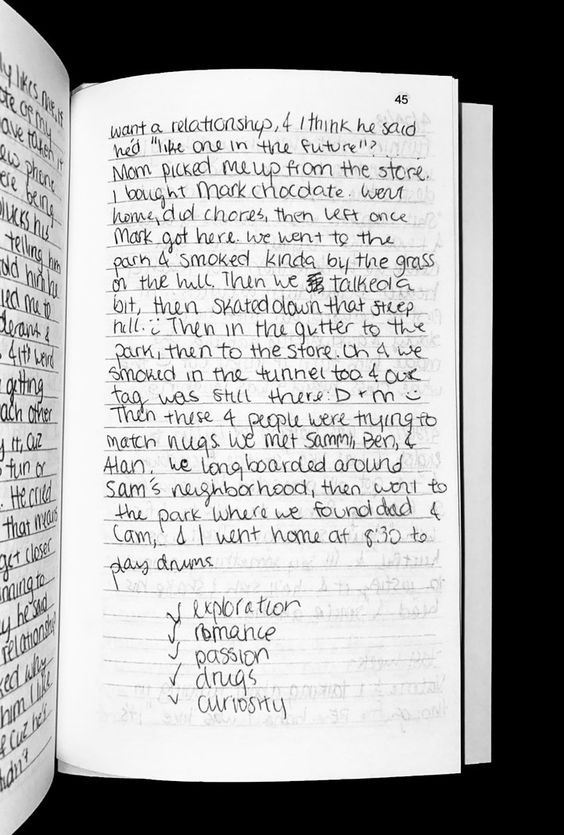 45
want a relationship, & I think he said
he'd "like one in the future"?
Mom picked me up from the store.
I bought Mark chocolate. Went
home, did chores, then left once
Mark got here. We went to the
park & smoked kinda by the grass
on the hill. Then we talked a
bit, then skated down that steep
hill. :) Then in the gutter to the
park, then to the store. Oh & we
smoked in the tunnel too & our
tag was still there: D + m :)
Then these 4 people were trying to
match nugs. We met Sammi, Ben, &
Alan. We longboarded around
Sam's neighborhood, then went to
the park where we found dad &
Cam, & I went home at 8:30 to
play drums.
✓ exploration
✓ romance
✓ passion
✓ drugs
✓ curiosity
ly likes me, it
ote of my
have taken it
new phone
ere being
plucks his
telling him
told him he
ed me to
derant &
& it's weird
getting
each other
y it, cuz
s fun or
He cried
that means
get closer
nning to
y he said
relationship
ked why
him I like
& cuz he's
didn't